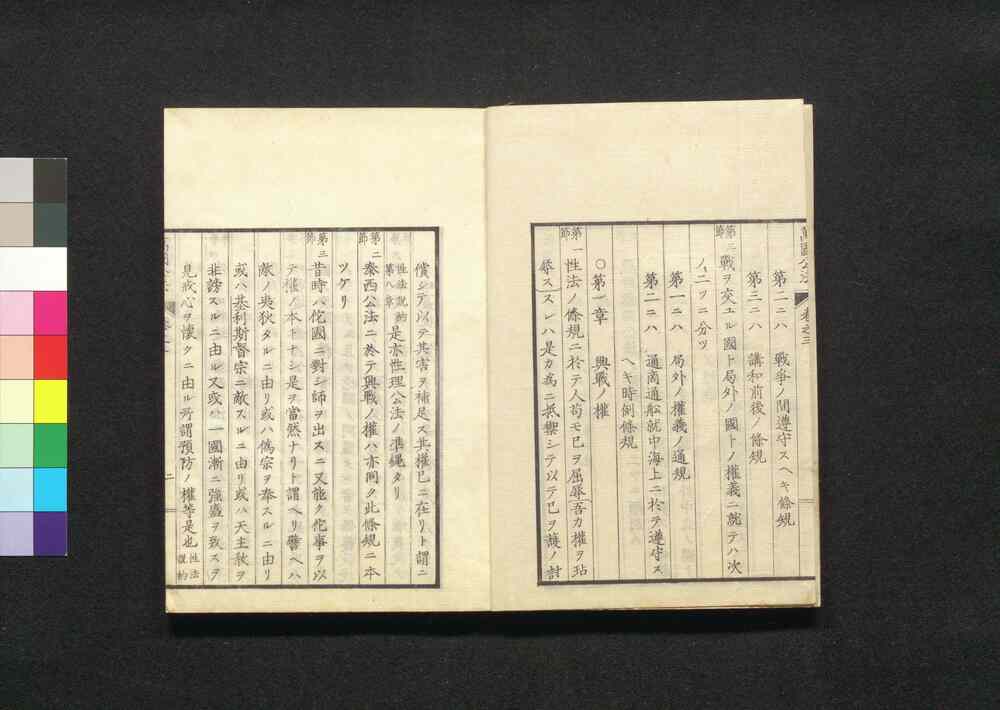 第二ニハ 戰爭ノ間遵守スヘキ條規
第三ニハ 講和前後ノ條規
第三節 戰ヲ交ユル國ト局外ノ國トノ權義ニ就テハ次
ノ二ツニ分ツ
第一ニハ 局外ノ權義ノ通規
第二ニハ 通商通舩就中海上ニ於テ遵守ス
ヘキ時例條規
○第一章 興戰ノ權
第一節 性法ノ條規ニ於テ人苟モ己ヲ屈辱吾カ權ヲ玷
辱ススレハ是カ爲ニ抵禦シテ以テ己ヲ護ノ討
償シテ以テ其害ヲ補足ス其權己ニ在リト謂ニ
性法説約第八章 是亦性理公法ノ準繩タリ
第二節 泰西公法ニ於テ興戰ノ權ハ亦同ク此條規ニ本
ツケリ
第三節 昔時ハ佗國ニ對シ師ヲ出スニ又能ク佗事ヲ以
テ權ノ本トナシ是ヲ當然ナリト謂ヘリ譬ヘハ
敵ノ夷狄タルニ由リ或ハ僞宗ヲ奉スルニ由リ
或ハ基利斯督宗ニ敵スルニ由リ或ハ天主敎ヲ
非謗スルニ由ル又或ハ一國漸ニ強盛ヲ致スヲ
見戒心ヲ懷クニ由ル所謂預防ノ權等是也 性法説約
二